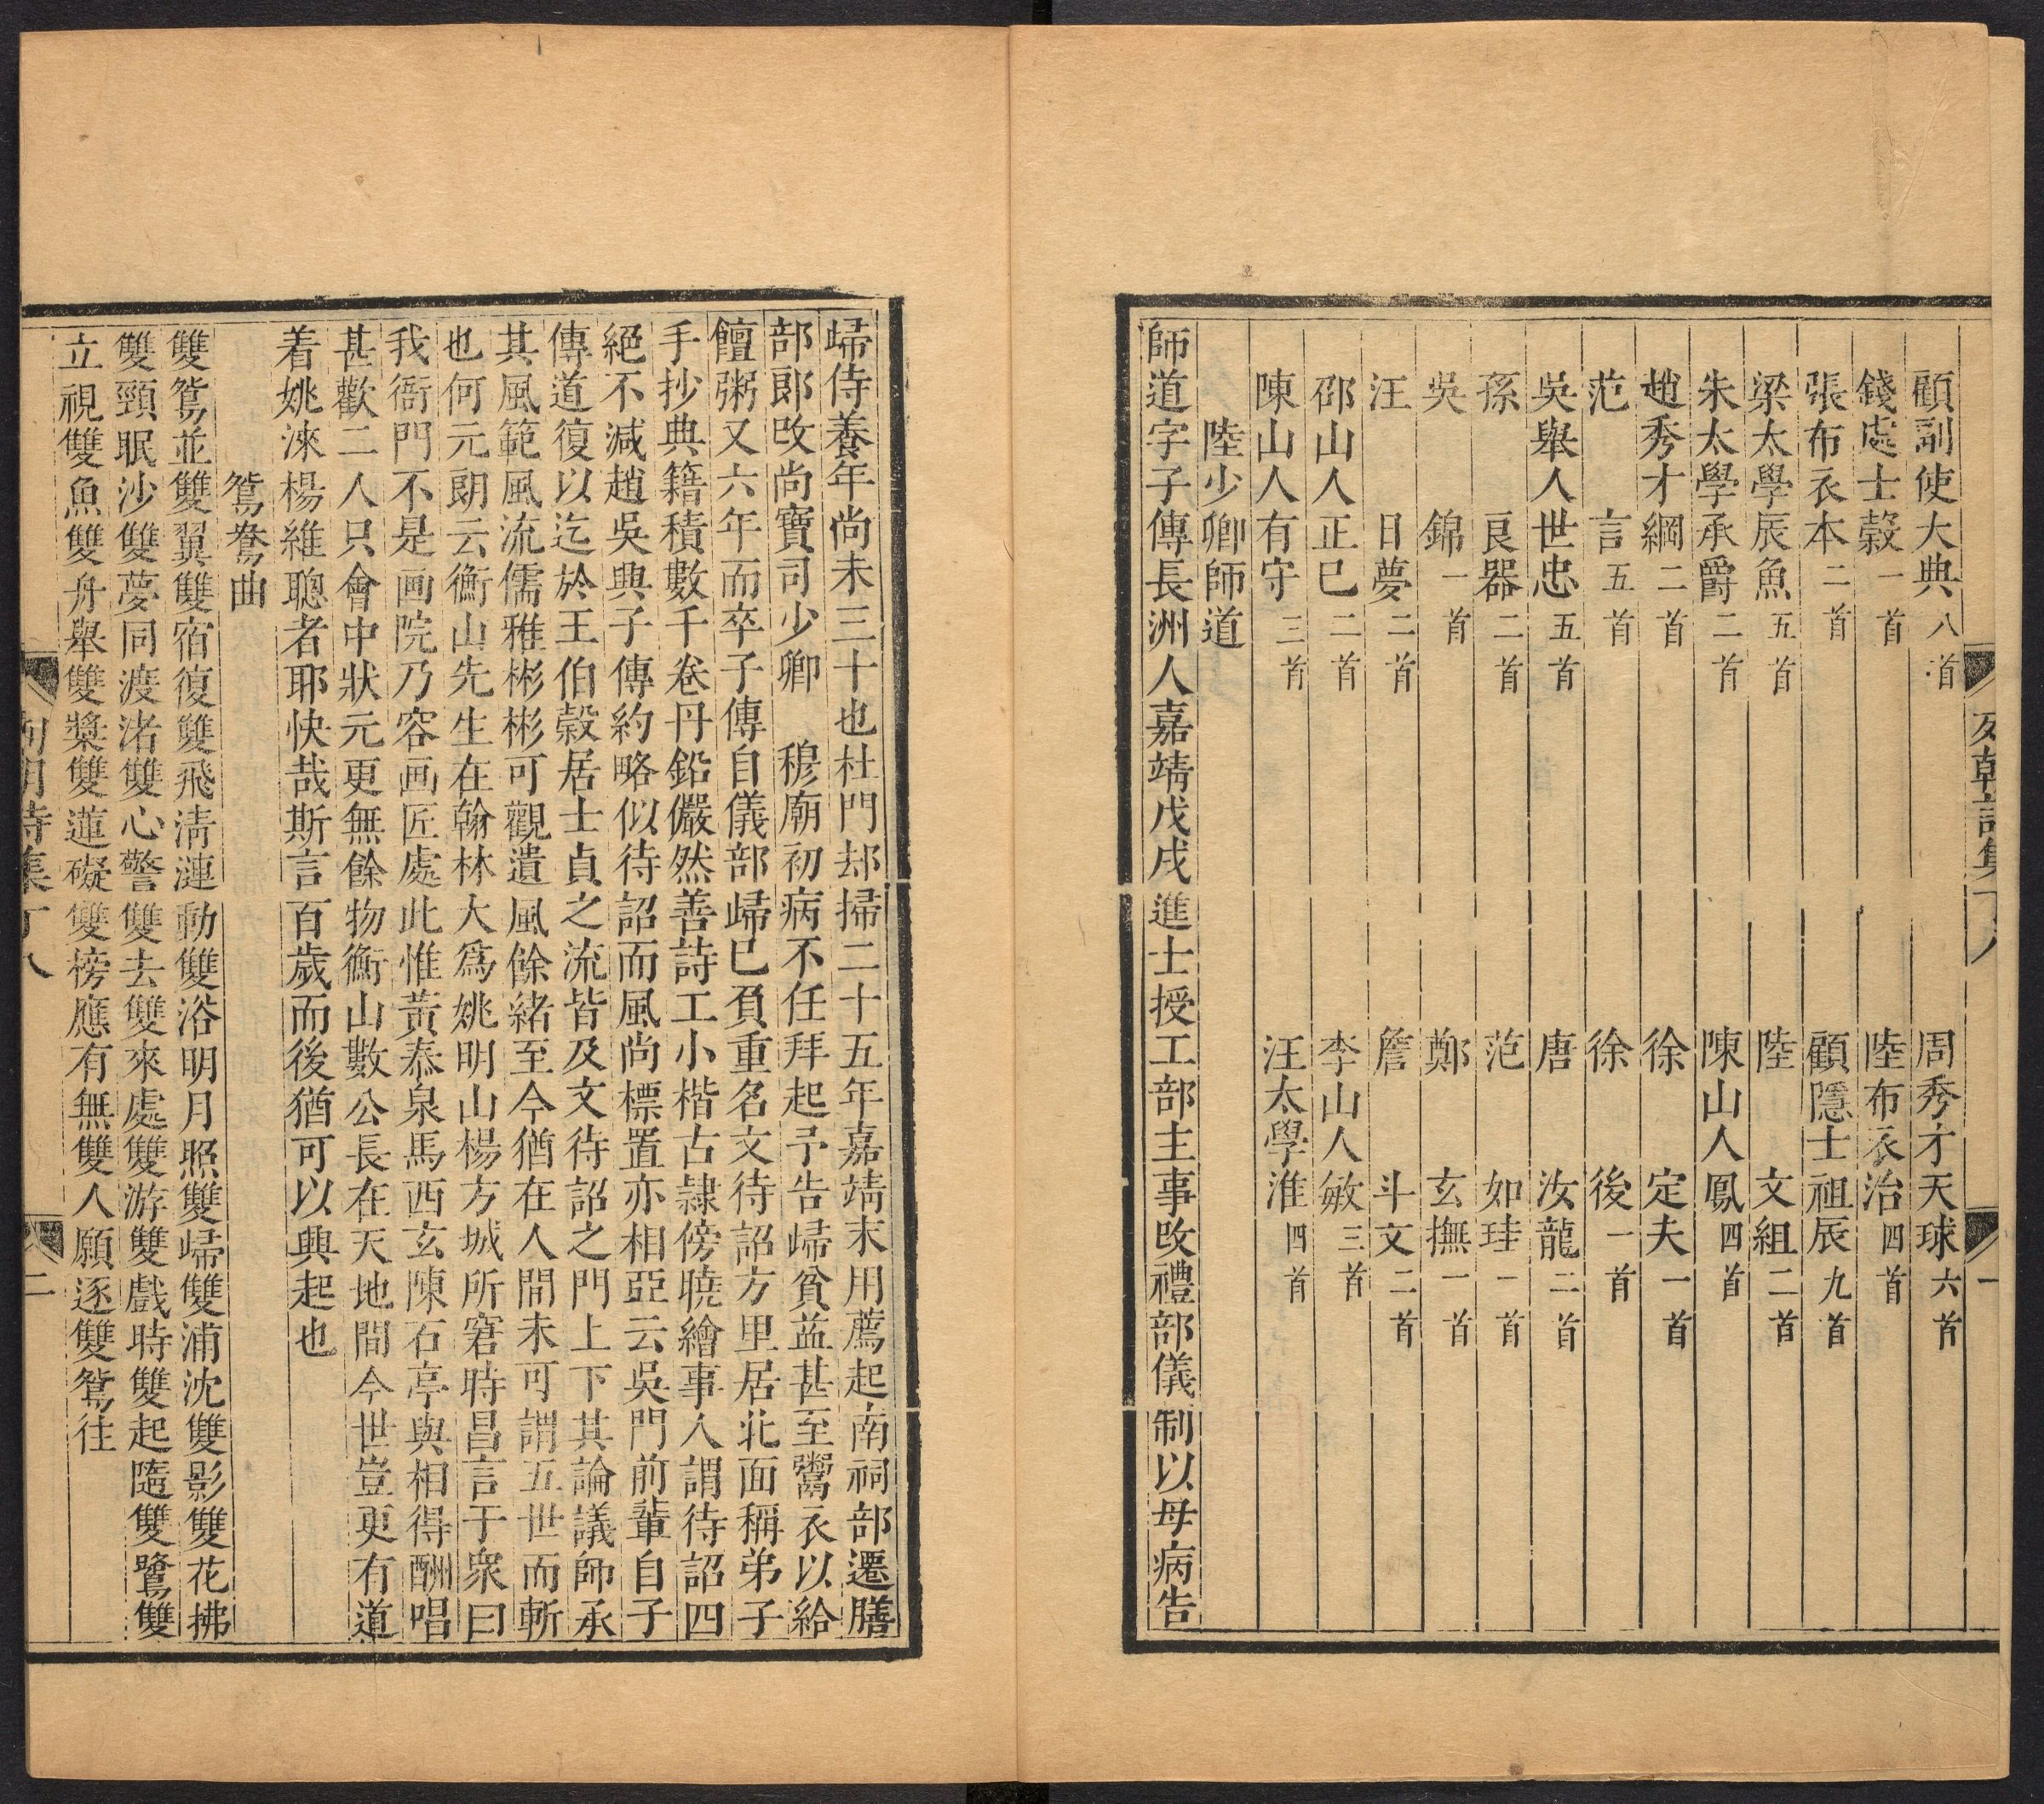 顧副使大典八首　周秀才天球六首
錢處士穀一首　陸布衣治四首
張布衣本二首　顧隱士祖辰九首
梁太學辰魚五首　陸文組二首
朱太學承爵二首　陳山人鳳四首
趙秀才綱二首　徐定夫一首
范言五首　徐後一首
吳舉人世忠五首　唐汝龍二首
孫良器二首　范如珪一首
吳錦一首　鄭玄撫一首
汪日夢二首　詹斗文二首
邵山人正已二首　李山人敏三首
陳山人有守三首　汪太學淮四首
陸少卿師道
師道字子傳長洲人嘉靖戊戌進士授工部主事改禮部儀制以母病告
歸侍養年尚未三十也杜門却掃二十五年嘉靖末用薦起南祠部遷膳
部郎改尚寶司少卿　穆廟初病不任拜起予告歸貧益甚至鬻衣以給
饘粥又六年而卒子傳自儀部歸已負重名文待詔方里居北面稱弟子
手抄典籍積數千卷丹鉛儼然善詩工小楷古隷傍曉繪事人謂待詔四
絕不減趙吳興子傳約略似待詔而風尚標置亦相亞云吳門前輩自子
傳道復以迄於王伯榖居士貞之流皆及文待詔之門上下其論議師承
其風範風流儒雅彬彬可觀遺風餘緒至今猶在人間未可謂五世而斬
也何元朗云衡山先生在翰林大爲姚明山楊方城所窘時昌言于衆曰
我衙門不是画院乃容画匠處此惟黃泰泉馬西玄陳石亭與相得酬唱
甚歡二人只會中狀元更無餘物衡山數公長在天地間今世豈更有道
着姚淶楊維聰者耶快哉斯言百歲而後猶可以興起也
鴛鴦曲
雙鴛並雙翼雙宿復雙飛淸漣動雙浴明月照雙歸雙浦沈雙影雙花拂
雙頸眠沙雙夢同渡渚雙心警雙去雙來處雙游雙戲時雙起隨雙鷺雙
立視雙魚雙舟舉雙槳雙蓮礙雙榜應有無雙人願逐雙鴛往
列朝詩集　丁八　二